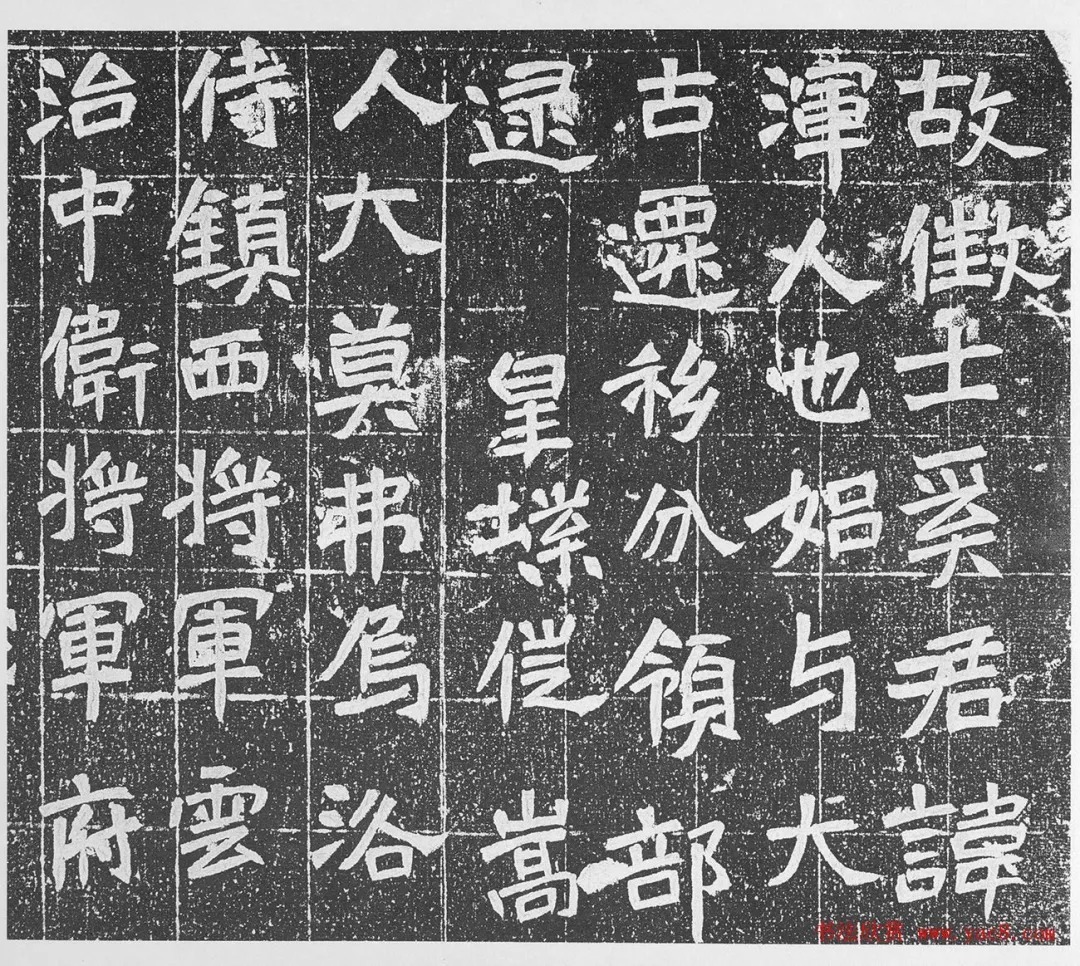 故徵士奚君諱
渾人也娟与大
古遷移分領部
逯 皇業徙嵩
人大莫弗烏洛
侍鎮西將軍雲
治中衛將軍府